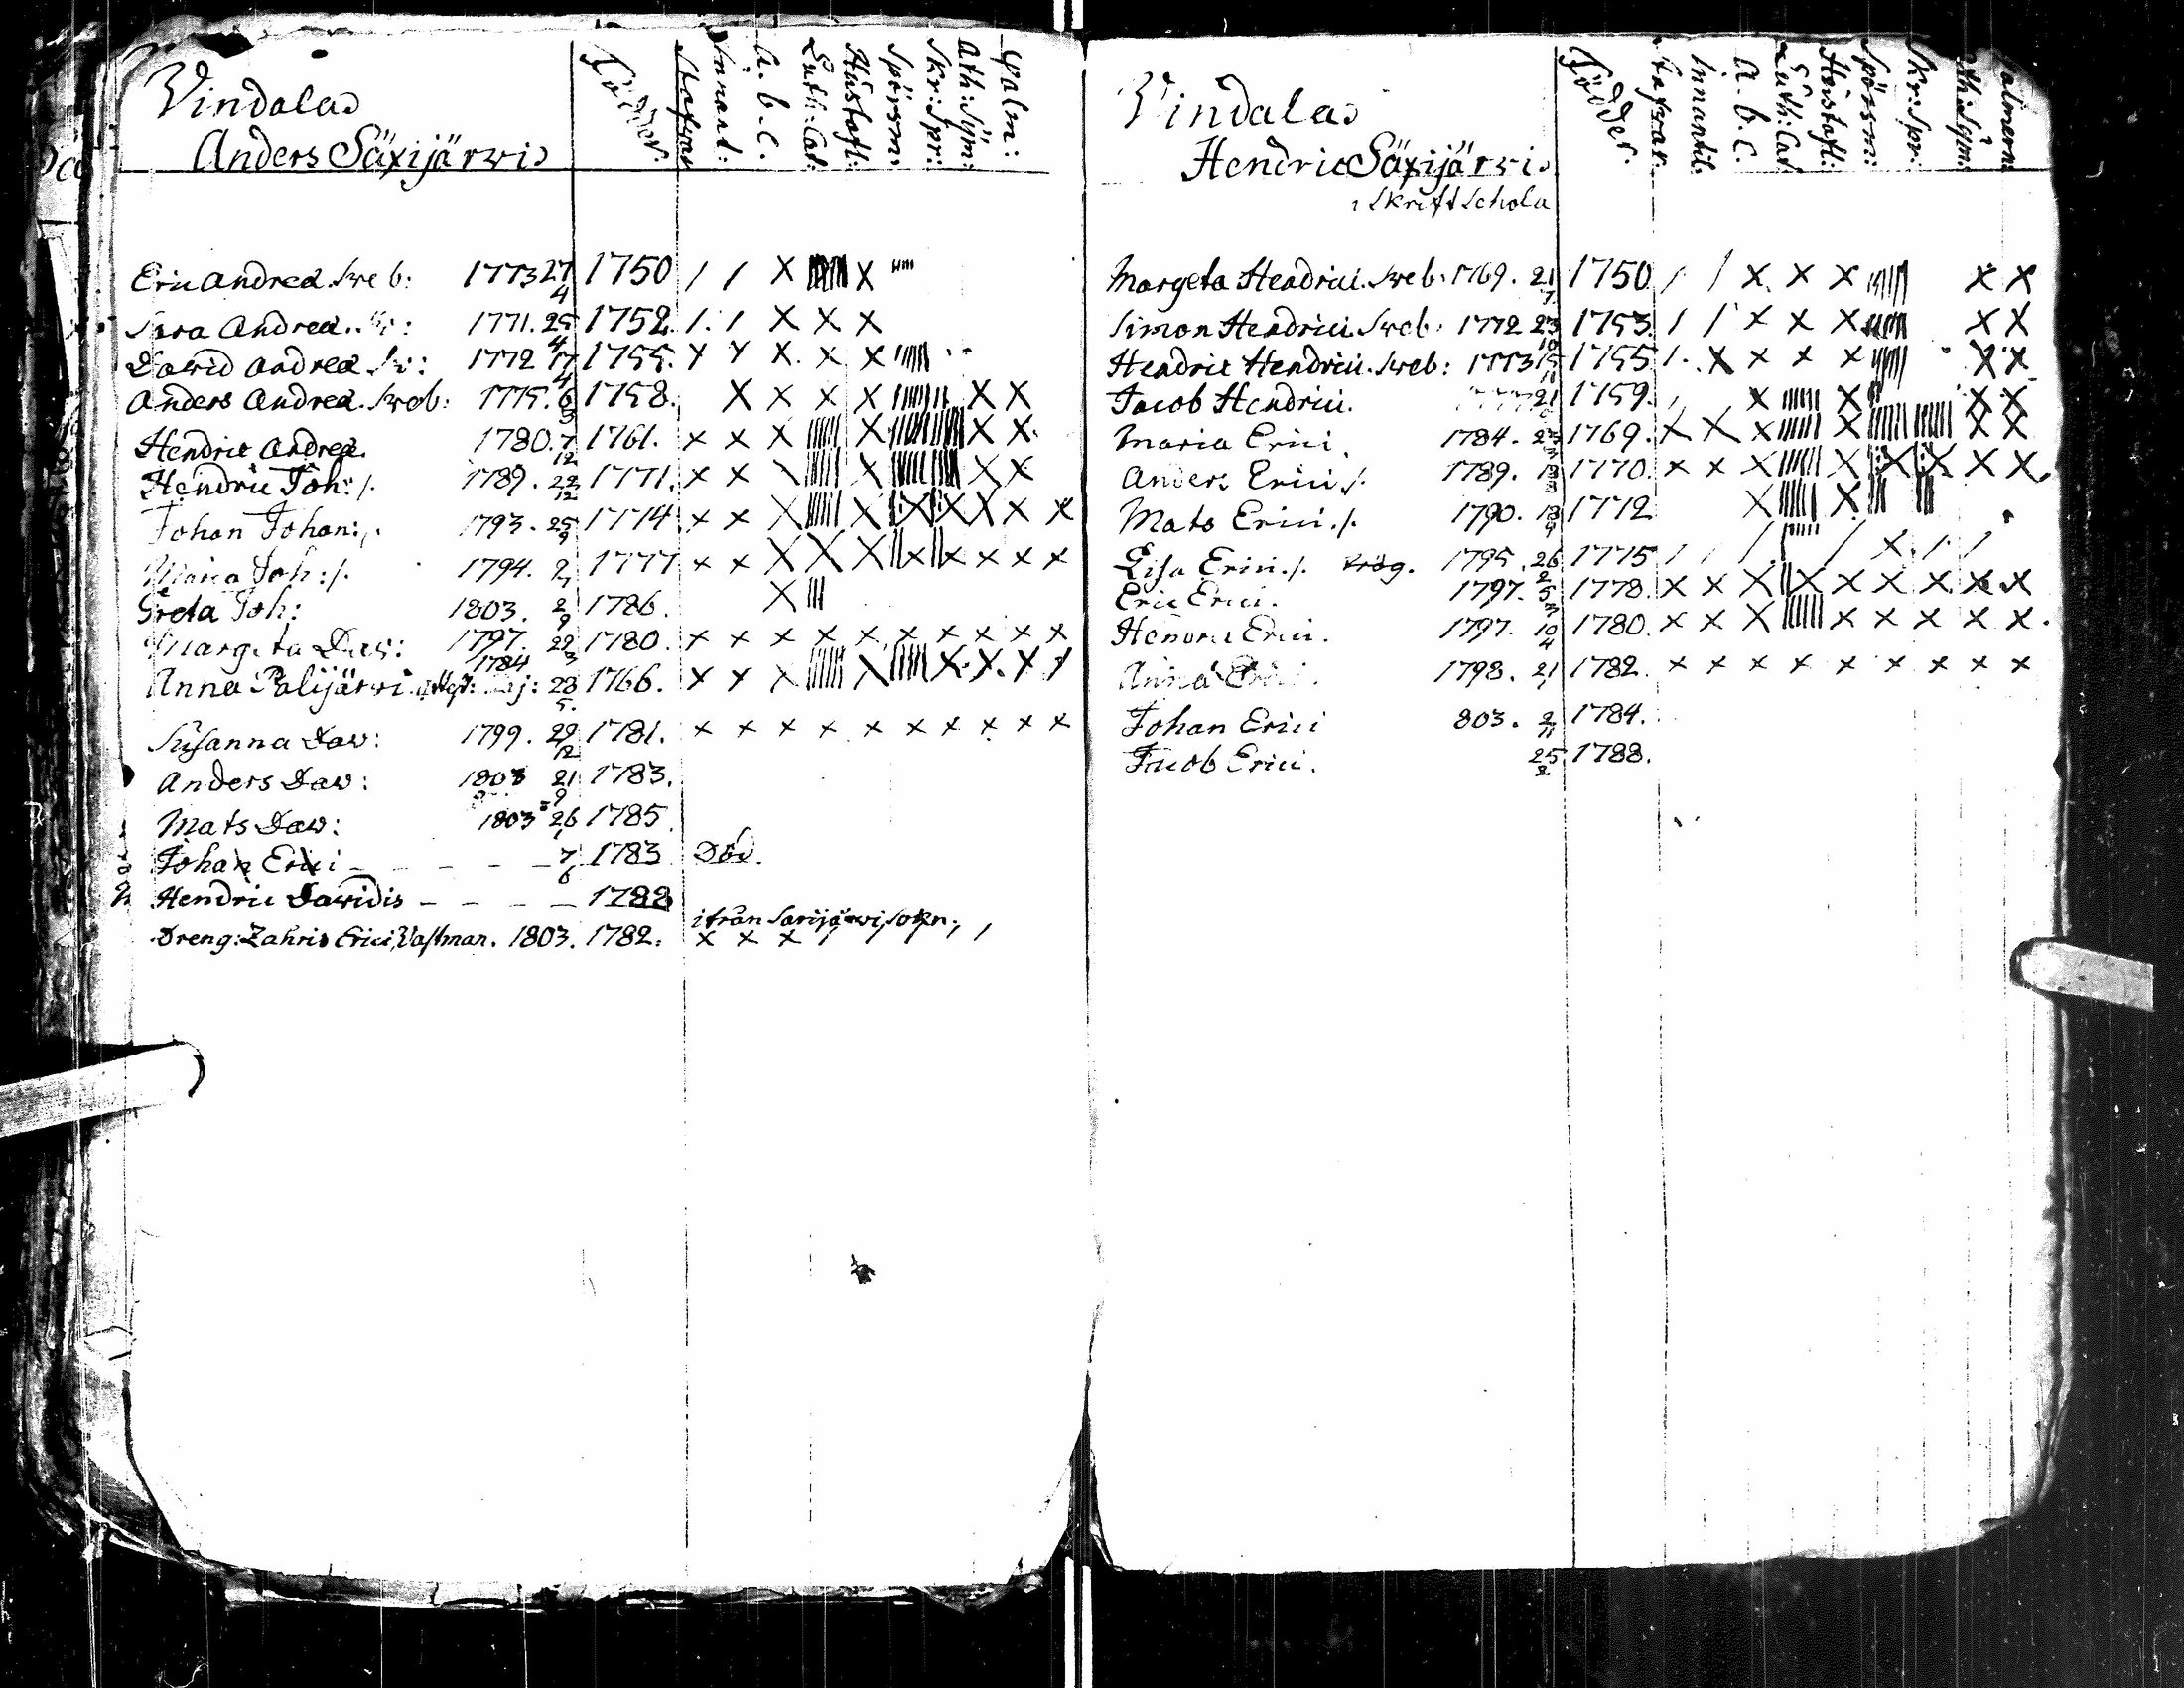 Vindalas
Anders Säxijärwis
Födder.
Stafvar
Innant:
a. b. c.
Luth: Cat:
Hustafl:
Spörsm:
Skr: Spr:
Ath: Sym:
Psalm:
Eric Andreæ. Sveb: 1773 27/4 1750 / / X X
Sara Andreæ. Sv: 1771. 25/4 1752. / / X X X
David Andreæ Sv: 1772 17/4 1755. X X X X X
Anders Andreæ. Sveb: 1775. 6/3 1758. X X X X X X
Hendric Andreæ. 1780. 7/12 1761. X X X X X X
Hendric Joh: /. 1789. 22/12 1771. X X X X X
Johan Johan: /. 1793. 25/9 1774 X X X X X X X X X
Maria Joh: /. 1794. 1777 X X X X X X X X X X
Greta Joh: 1803. 2/9 1786. X
Margeta Dav: 1797. 22/3 1780. X X X X X X X X X X
Anna Palijärvi 1784 28/5. 1766. X X X X X X X
Susanna Dav: 1799. 29/12 1781. X X X X X X X X X X
Anders Dav: 1803 21/9 1783.
Mats Dav: 1803 26/1 1785
Johan Erici – – – – – 7/6 1783 Död.
Hendric Davidis – – – – 1788
ifrån Sarijärvi Sokn:
Dreng: Zahris Erici Vastman. 1803. 1782. X X X / / / /
Vindalas
Hendric Säxijärwis
i Skrift Schola
Födder.
Stafvar.
Innantil.
a. b. c.
Luth: Cat
Hustafl:
Spörsm:
Skr: Spr:
Ath: Sym:
Psalmern:
Margeta Hendrici. Sveb: 1769. 21/7. 1750. / / X X X X X
Simon Hendrici. Sveb: 1772 23/10 1753. / / X X X X X
Hendric Hendrici. Sveb: 1773 15/11 1755 / X X X X X X
Jacob Hendrici. 21 1759. / X X X X
Maria Erici 1784. 1769. X X X X X X
Anders Erici /. 1789. 1770. X X X X X X X X
Mats Erici. /. 1790. 13/9 1772 X X
Lisa Erici. /. trög. 1795. 26/2 1775 / / / / X / /
Eric Erici. 1797. 1778. X X X X X X X X X
Hendric Erici. 1797. 10/4 1780. X X X X X X X X
Anna Erici. 1798. 21/1 1782. X X X X X X X X X
Johan Erici 803. 2/11 1784.
Jacob Erici. 25/2 1788.